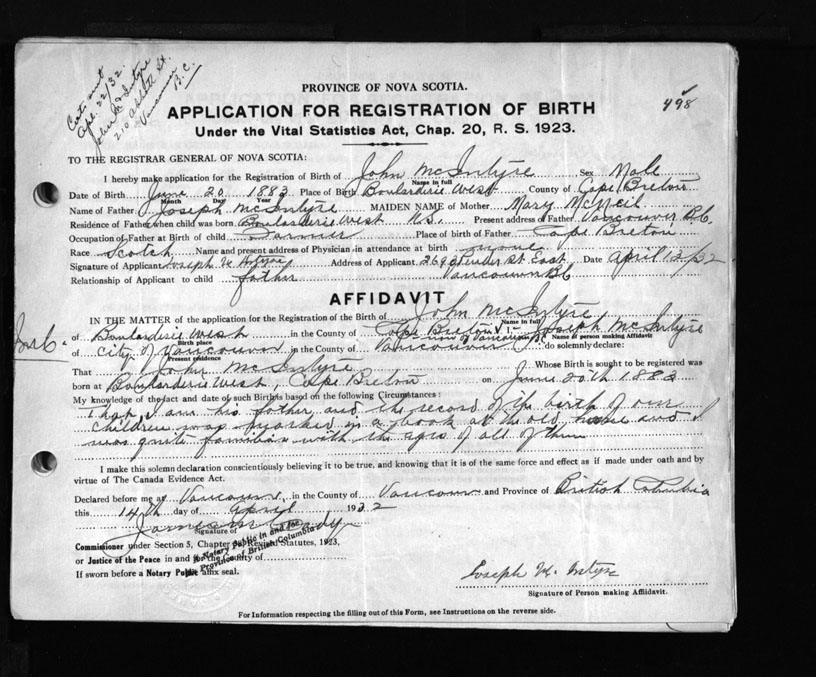 Cert. sent
Apl. 22/32.
John McIntyre
Vancouver
B.C.
PROVINCE OF NOVA SCOTIA.
498
APPLICATION FOR REGISTRATION OF BIRTH
Under the Vital Statistics Act, Chap. 20, R. S. 1923.
TO THE REGISTRAR GENERAL OF NOVA SCOTIA:
I hereby make application for the Registration of Birth of John McIntyre Sex Male
Name in full
Date of Birth June 20 1883 Place of Birth Boularderie West County of Cape Breton
Month Day Year
Name of Father Joseph McIntyre MAIDEN NAME of Mother Mary McNeil
Residence of Father when child was born Boularderie West N.S. Present address of Father Vancouver B.C.
Occupation of Father at Birth of child Farmer Place of birth of Father Cape Breton
Race Scotch Name and present address of Physician in attendance at birth none
Signature of Applicant Joseph Mc Intyre Address of Applicant Pender St. East Date April 13/32
Relationship of Applicant to child father Vancouver BC
AFFIDAVIT
IN THE MATTER of the application for the Registration of the Birth of John McIntyre
Name in full
of Boularderie West in the County of Cape Breton I, Joseph McIntyre
Birth place Name of person making Affidavit
of City of Vancouver in the County of Vancouver do solemnly declare:
Present residence
That John McIntyre Whose Birth is sought to be registered was
born at Boularderie West, Cape Breton on June 20th 1883
My knowledge of the fact and date of such Birth is based on the following Circumstances:
That I am his father and the record of the birth of our
children was marked in a book at the old home and I
was quite familiar with the ages of all of them
I make this solemn declaration conscientiously believing it to be true, and knowing that it is of the same force and effect as if made under oath and by
virtue of The Canada Evidence Act.
Declared before me at Vancouver, in the County of Vancouver and Province of British Columbia
this 14th day of April 1932
Signature of
A Notary Public in and for the
Province of British Columbia
Commissioner under Section 5, Chapter Revised Statutes, 1923,
or Justice of the Peace in and for the County of
If sworn before a Notary Public affix seal.
Joseph Mc Intyre
Signature of Person making Affidavit.
For Information respecting the filling out of this Form, see Instructions on the reverse side.